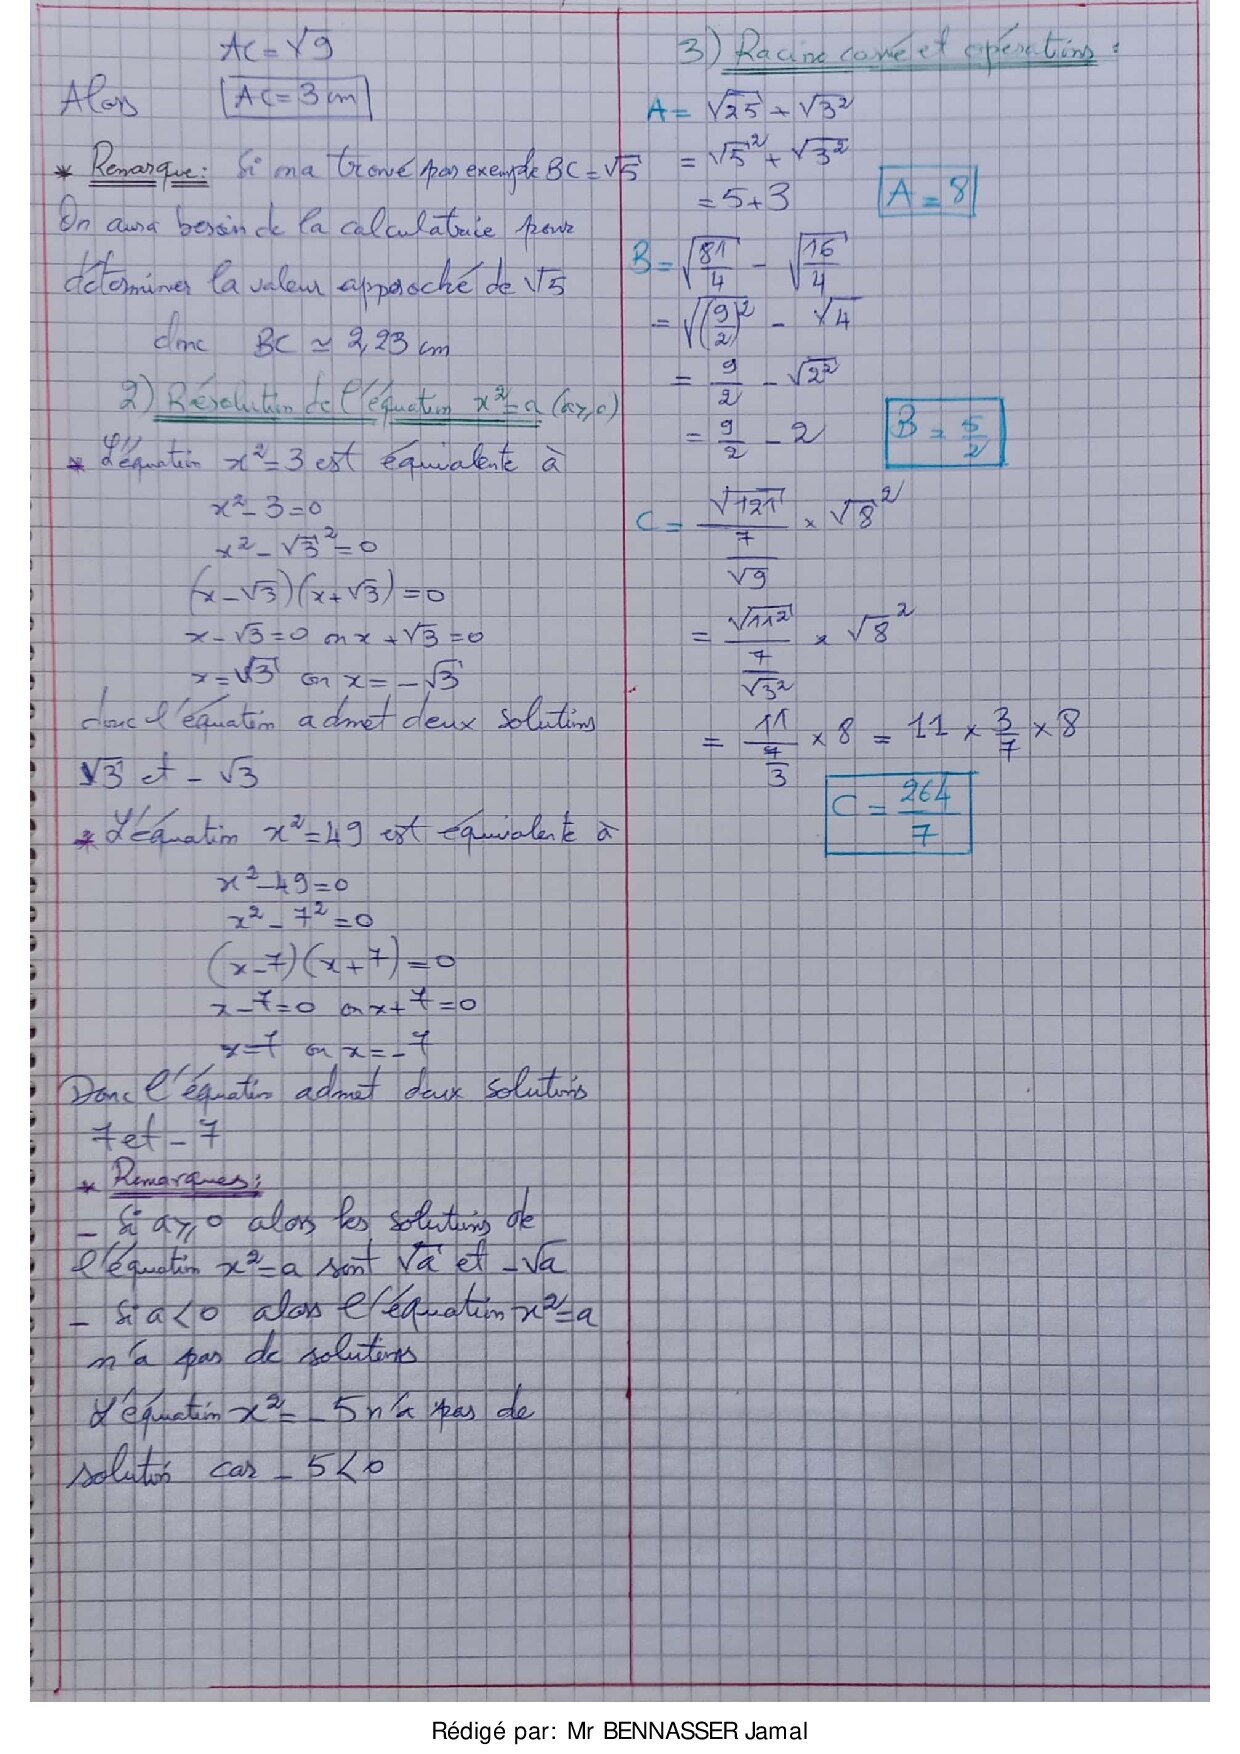 AC = √9
Alors AC = 3 cm
* Remarque: Si ona trouvé par exemple BC = √5
On aura besoin de la calculatrice pour
déterminer la valeur approché de √5
donc BC ≃ 2,23 cm
2) Résolution de l'équation x² = a (a⩾0)
* L'équation x² = 3 est équivalente à
x² - 3 = 0
x² - √3² = 0
(x - √3)(x + √3) = 0
x - √3 = 0 ou x + √3 = 0
x = √3 ou x = - √3
donc l'équation admet deux solutions
√3 et - √3
* L'équation x² = 49 est équivalente à
x² - 49 = 0
x² - 7² = 0
(x - 7)(x + 7) = 0
x - 7 = 0 ou x + 7 = 0
x = 7 ou x = - 7
Donc l'équation admet deux solutions
7 et - 7
* Remarques:
- Si a⩾0 alors les solutions de
l'équation x² = a sont √a et - √a
- Si a < 0 alors l'équation x² = a
n'a pas de solutions
L'équation x² = - 5 n'a pas de
solution car - 5 < 0
3) Racine carré et opérations :
A = √25 + √3²
= √5² + √3²
= 5 + 3 A = 8
B = √(81/4) - √(16/4)
= √(9/2)² - √4
= 9/2 - √2²
= 9/2 - 2 B = 5/2
C = √121/(7/√9) × √8²
= √11²/(7/√3²) × √8²
= 11/(7/3) × 8 = 11 × 3/7 × 8
C = 264/7
Rédigé par: Mr BENNASSER Jamal